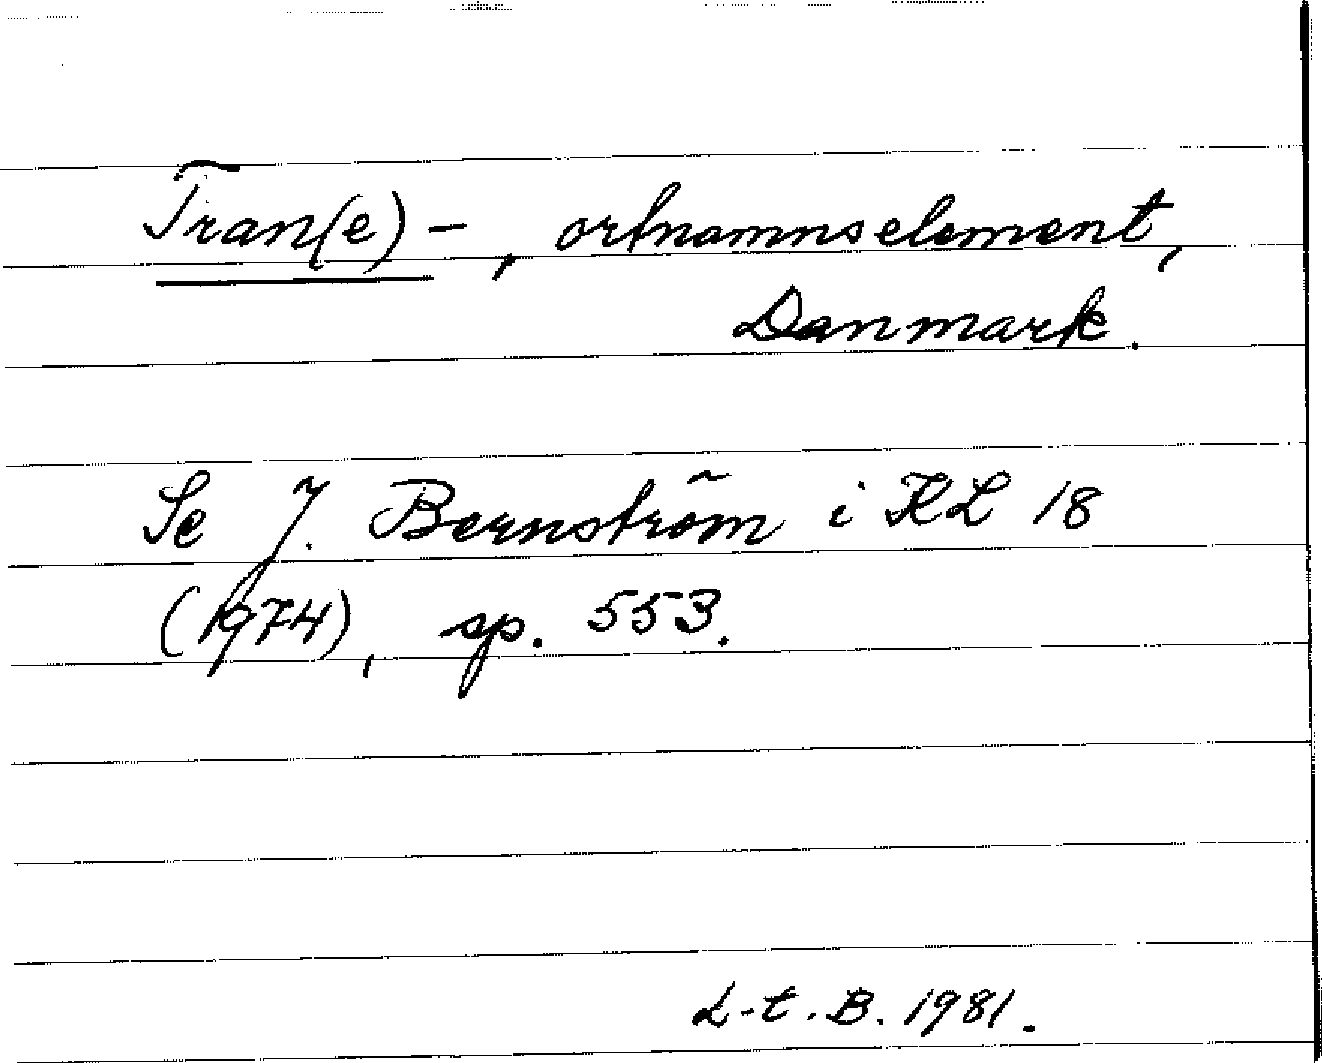 Tran(e)-, ortnamnselement,
Danmark.
Se J. Bernström i KL 18
(1974), sp. 553.
L-t. B. 1981.